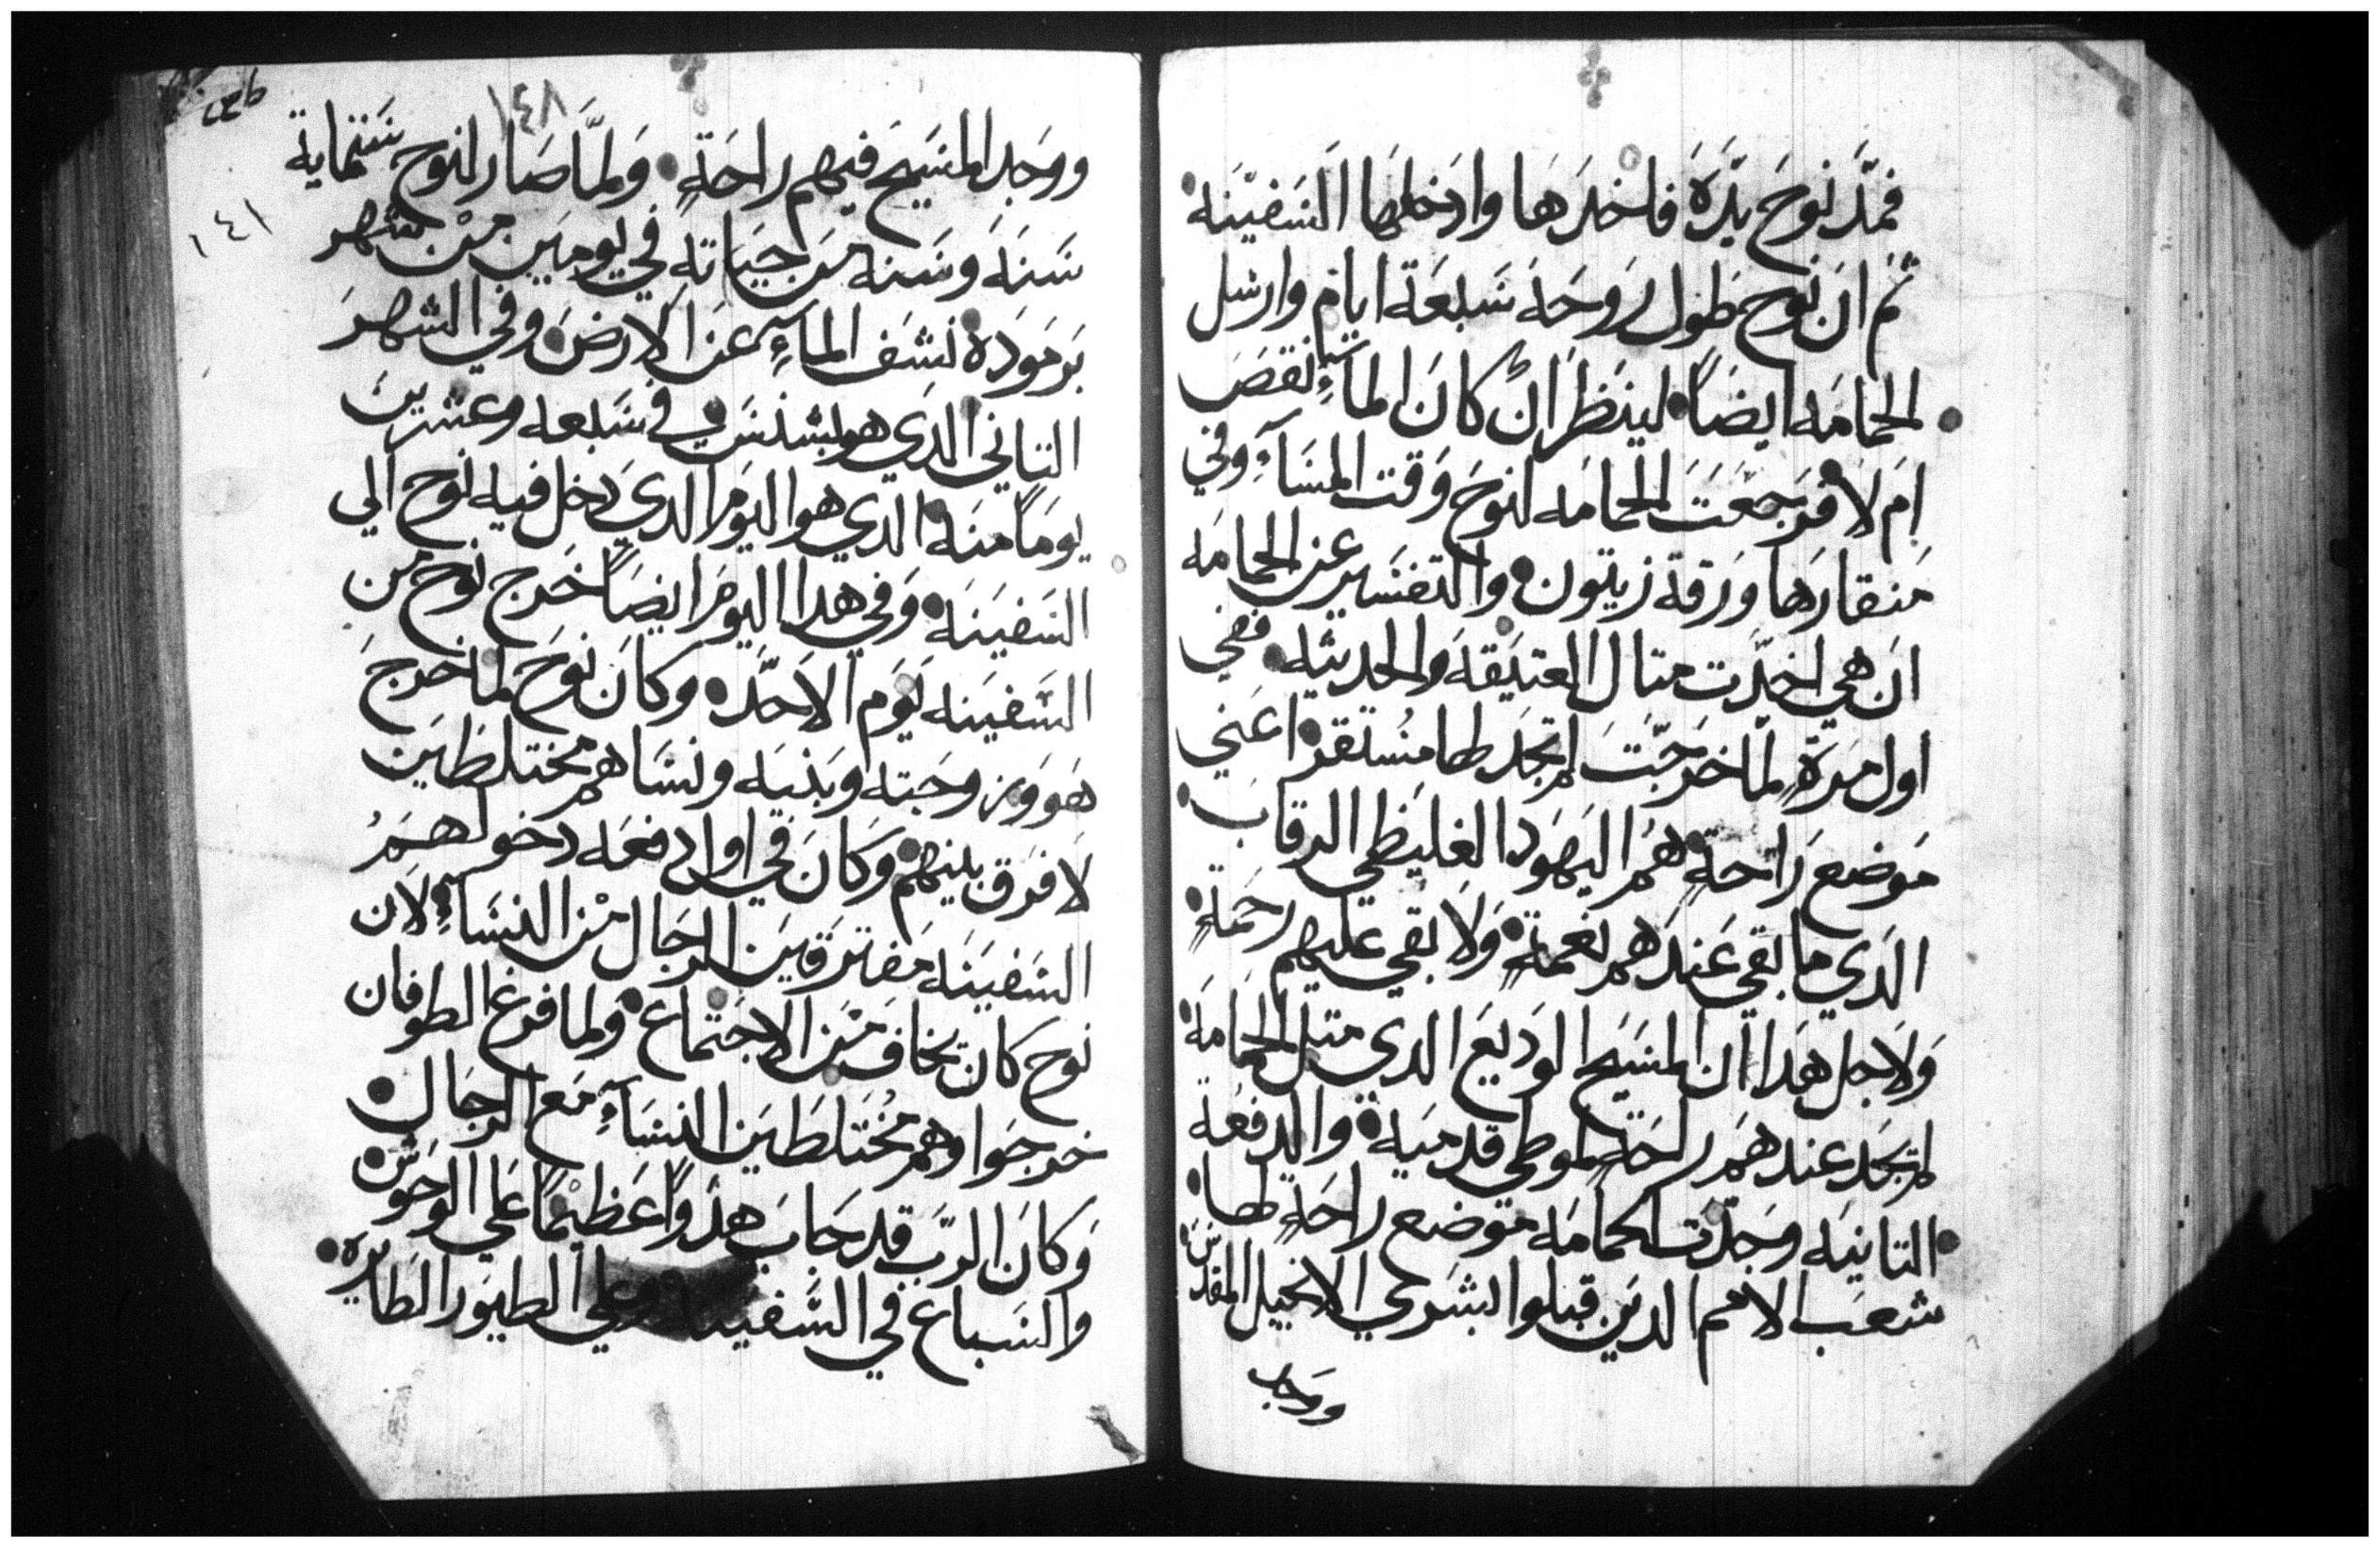 فمد نوح يده فاخدها وادخلها السفينه
ثم ان نوح طول روحه سبعة ايام وارسل
الحمامه ايضاً لينظر ان كان الماء نقص
ام لا فرجعت الحمامه لنوح وقت المساء وفي
منقارها ورقة زيتون والتفسير عن الحمامه
ان هي اخدت متال العتيقه والحديثه ففي
اول مرة لما خرجت لم تجد لها مستقر اعني
موضع راحة هم اليهود الغليظي الرقاب
الدي ما بقي عندهم نعمة ولا بقي عليهم رحمة
ولاجل هدا ان المسيح الوديع الدي متل الحمامه
لم يجد عندهم راحة لموطي قدميه والدفعه
التانيه وجدت الحمامه موضع راحة لها
شعب الامم الدين قبلوا بشري الانجيل المقدس
ووجد
١٤٨
١٤١
ووجد المسيح فيهم راحة ولما صار لنوح ستماية
سنه وسنه من حياته في يومين من شهر
برموده نشف الماء عن الارض وفي الشهر
التاني الدي هو بشنس في سبعه وعشرين
يوماً منه الدي هو اليوم الدي دخل فيه نوح الي
السفينه وفي هدا اليوم ايضاً خرج نوح من
السفينه يوم الاحد وكان نوح لما خرج
هو وزوجته وبنيه ونساهم مختلطين
لا فرق بينهم وكان في اول دفعه دخولهم
السفينه مفترقين الرجال من النساء لان
نوح كان يخاف من الاجتماع ولما فرغ الطوفان
خرجوا وهم مختلطين النساء مع الرجال
وكان الرب قد جاب هدواً عظيماً علي الوحوش
والسباع في السفينه وعلي الطيور الطايره